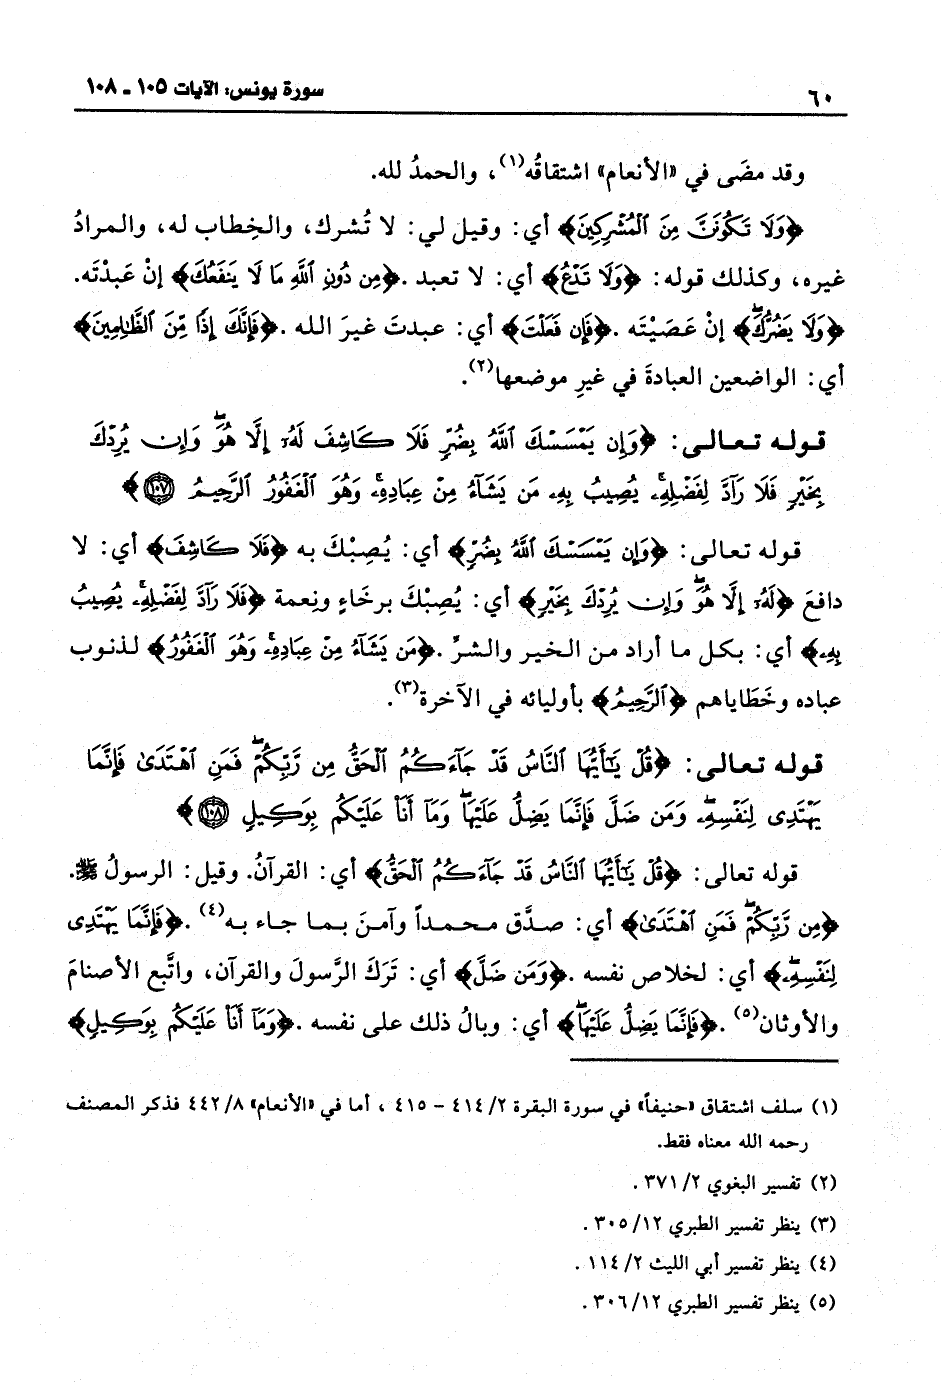 ٦٠
سورة يونس: الآيات ١٠٥ - ١٠٨
وقد مضَى في «الأنعام» اشتقاقُه(١)، والحمدُ لله.
﴿وَلَا تَكُونَنَّ مِنَ ٱلْمُشْرِكِينَ﴾ أي: وقيل لي: لا تُشرك، والخِطاب له، والمرادُ
غيره، وكذلك قوله: ﴿وَلَا تَدْعُ﴾ أي: لا تعبد. ﴿مِن دُونِ ٱللَّهِ مَا لَا يَنفَعُكَ﴾ إنْ عَبدْتَه.
﴿وَلَا يَضُرُّكَۖ﴾ إنْ عَصَيْتَه. ﴿فَإِن فَعَلْتَ﴾ أي: عبدتَ غيرَ الله. ﴿فَإِنَّكَ إِذًا مِّنَ ٱلظَّٰلِمِينَ﴾
أي: الواضعين العبادةَ في غيرِ موضعها(٢).
قوله تعالى: ﴿وَإِن يَمْسَسْكَ ٱللَّهُ بِضُرٍّ فَلَا كَاشِفَ لَهُۥٓ إِلَّا هُوَۖ وَإِن يُرِدْكَ
بِخَيْرٍ فَلَا رَآدَّ لِفَضْلِهِۦۚ يُصِيبُ بِهِۦ مَن يَشَآءُ مِنْ عِبَادِهِۦۚ وَهُوَ ٱلْغَفُورُ ٱلرَّحِيمُ ١٠٧﴾
قوله تعالى: ﴿وَإِن يَمْسَسْكَ ٱللَّهُ بِضُرٍّ﴾ أي: يُصِبْكَ به ﴿فَلَا كَاشِفَ﴾ أي: لا
دافعَ ﴿لَهُۥٓ إِلَّا هُوَۖ وَإِن يُرِدْكَ بِخَيْرٍ﴾ أي: يُصِبْكَ برخَاءٍ ونِعمة ﴿فَلَا رَآدَّ لِفَضْلِهِۦۚ يُصِيبُ
بِهِۦ﴾ أي: بكل ما أراد من الخير والشرِّ. ﴿مَن يَشَآءُ مِنْ عِبَادِهِۦۚ وَهُوَ ٱلْغَفُورُ﴾ لذنوب
عباده وخَطَاياهم ﴿ٱلرَّحِيمُ﴾ بأوليائه في الآخرة(٣).
قوله تعالى: ﴿قُلْ يَٰٓأَيُّهَا ٱلنَّاسُ قَدْ جَآءَكُمُ ٱلْحَقُّ مِن رَّبِّكُمْۖ فَمَنِ ٱهْتَدَىٰ فَإِنَّمَا
يَهْتَدِى لِنَفْسِهِۦۖ وَمَن ضَلَّ فَإِنَّمَا يَضِلُّ عَلَيْهَاۖ وَمَآ أَنَا۠ عَلَيْكُم بِوَكِيلٍ ١٠٨﴾
قوله تعالى: ﴿قُلْ يَٰٓأَيُّهَا ٱلنَّاسُ قَدْ جَآءَكُمُ ٱلْحَقُّ﴾ أي: القرآنُ. وقيل: الرسولُ ﷺ.
﴿مِن رَّبِّكُمْۖ فَمَنِ ٱهْتَدَىٰ﴾ أي: صدَّق محمداً وآمنَ بما جاء به(٤). ﴿فَإِنَّمَا يَهْتَدِى
لِنَفْسِهِۦۖ﴾ أي: لخلاص نفسه. ﴿وَمَن ضَلَّ﴾ أي: تَرَكَ الرَّسولَ والقرآن، واتَّبع الأصنامَ
والأوثان(٥). ﴿فَإِنَّمَا يَضِلُّ عَلَيْهَاۖ﴾ أي: وبالُ ذلك على نفسه. ﴿وَمَآ أَنَا۠ عَلَيْكُم بِوَكِيلٍ﴾
(١) سلف اشتقاق «حنيفاً» في سورة البقرة ٤١٤/٢ - ٤١٥، أما في «الأنعام» ٤٤٢/٨ فذكر المصنف
رحمه الله معناه فقط.
(٢) تفسير البغوي ٣٧١/٢.
(٣) ينظر تفسير الطبري ٣٠٥/١٢.
(٤) ينظر تفسير أبي الليث ١١٤/٢.
(٥) ينظر تفسير الطبري ٣٠٦/١٢.